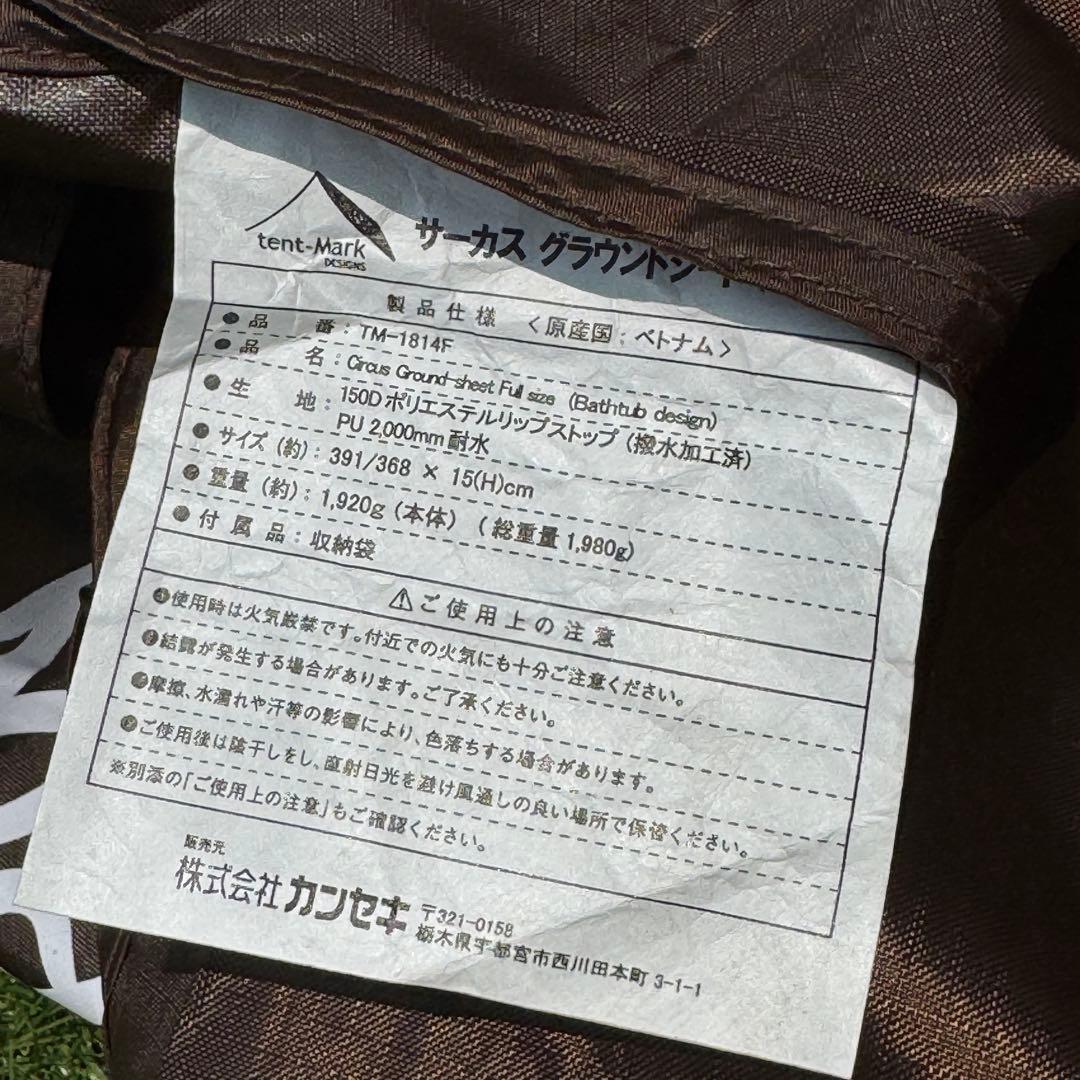 tent-Mark
DESIGNS
サーカス グラウンドシー
製品仕様 <原産国:ベトナム>
●品 番:TM-1814F
●品 名:Circus Ground-sheet Full size (Bathtub design)
●生 地:150Dポリエステルリップストップ(撥水加工済)
PU 2,000mm耐水
●サイズ(約):391/368 × 15(H)cm
●重量(約):1,920g(本体) (総重量1,980g)
●付属品:収納袋
⚠ご使用上の注意
●使用時は火気厳禁です。付近での火気にも十分ご注意ください。
●結露が発生する場合があります。ご了承ください。
●摩擦、水濡れや汗等の影響により、色落ちする場合があります。
●ご使用後は陰干しをし、直射日光を避け風通しの良い場所で保管ください。
※別添の「ご使用上の注意」もご確認ください。
販売元
株式会社カンセキ
〒321-0158
栃木県宇都宮市西川田本町 3-1-1